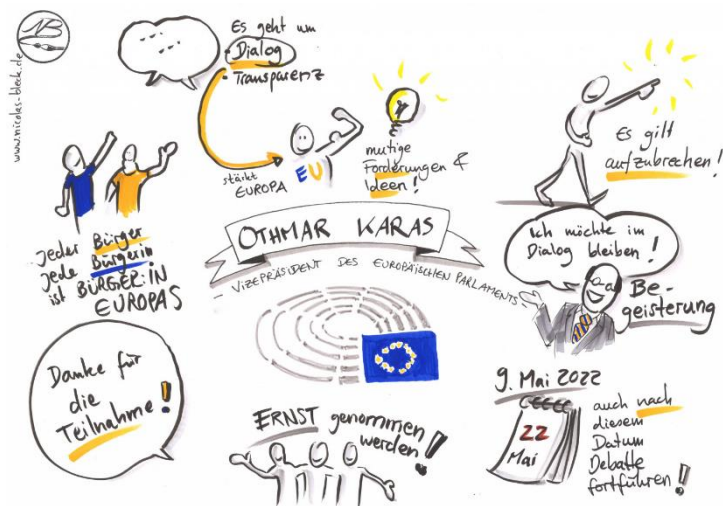 NB
www.nicolas-bleck.de
Es geht um
- Dialog
- Transparenz
stärkt
EUROPA
EU
mutige
Forderungen &
Ideen!
Es gilt
aufzubrechen!
Jeder Bürger
Jede Bürgerin
ist BÜRGER:IN
EUROPAS
OTHMAR KARAS
- VIZEPRÄSIDENT DES EUROPÄISCHEN PARLAMENTS -
Ich möchte im
Dialog bleiben!
Be-
geisterung
Danke für
die
Teilnahme!
ERNST genommen
werden!
9. Mai 2022
22
Mai
auch nach
diesem
Datum
Debatte
fortführen!